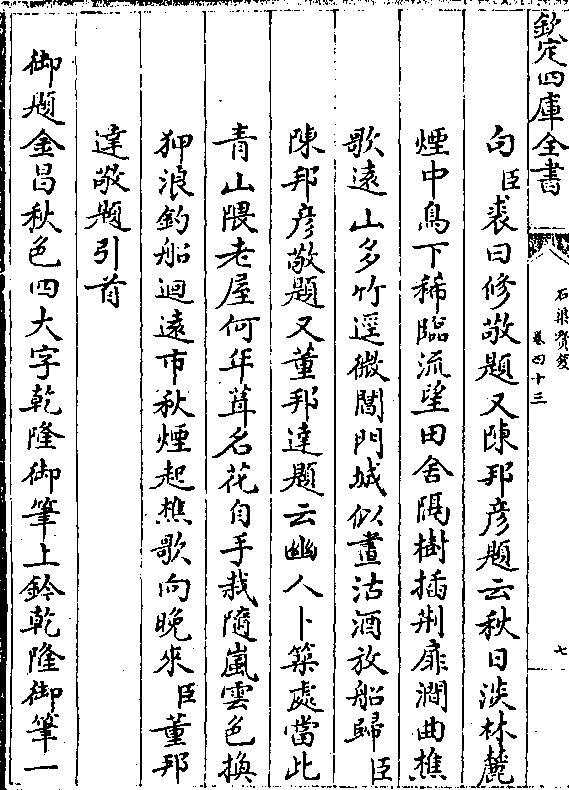 欽定四庫全書
石渠寳笈
卷四十三
七
句臣裘曰修敬題又陳邦彦題云秋日淡林麓
煙中鳥下稀臨流望田舍隔樹插荆扉澗曲樵
歌遠山多竹逕微閶門城似畫沽酒放船歸臣
陳邦彦敬題又董邦達題云幽人卜築處當此
青山隈老屋何年葺名花自手栽隨嵐雲色換
狎浪釣船迴遠市秋煙起樵歌向晚來臣董邦
達敬題引首
御題金昌秋色四大字乾隆御筆上鈐乾隆御筆一